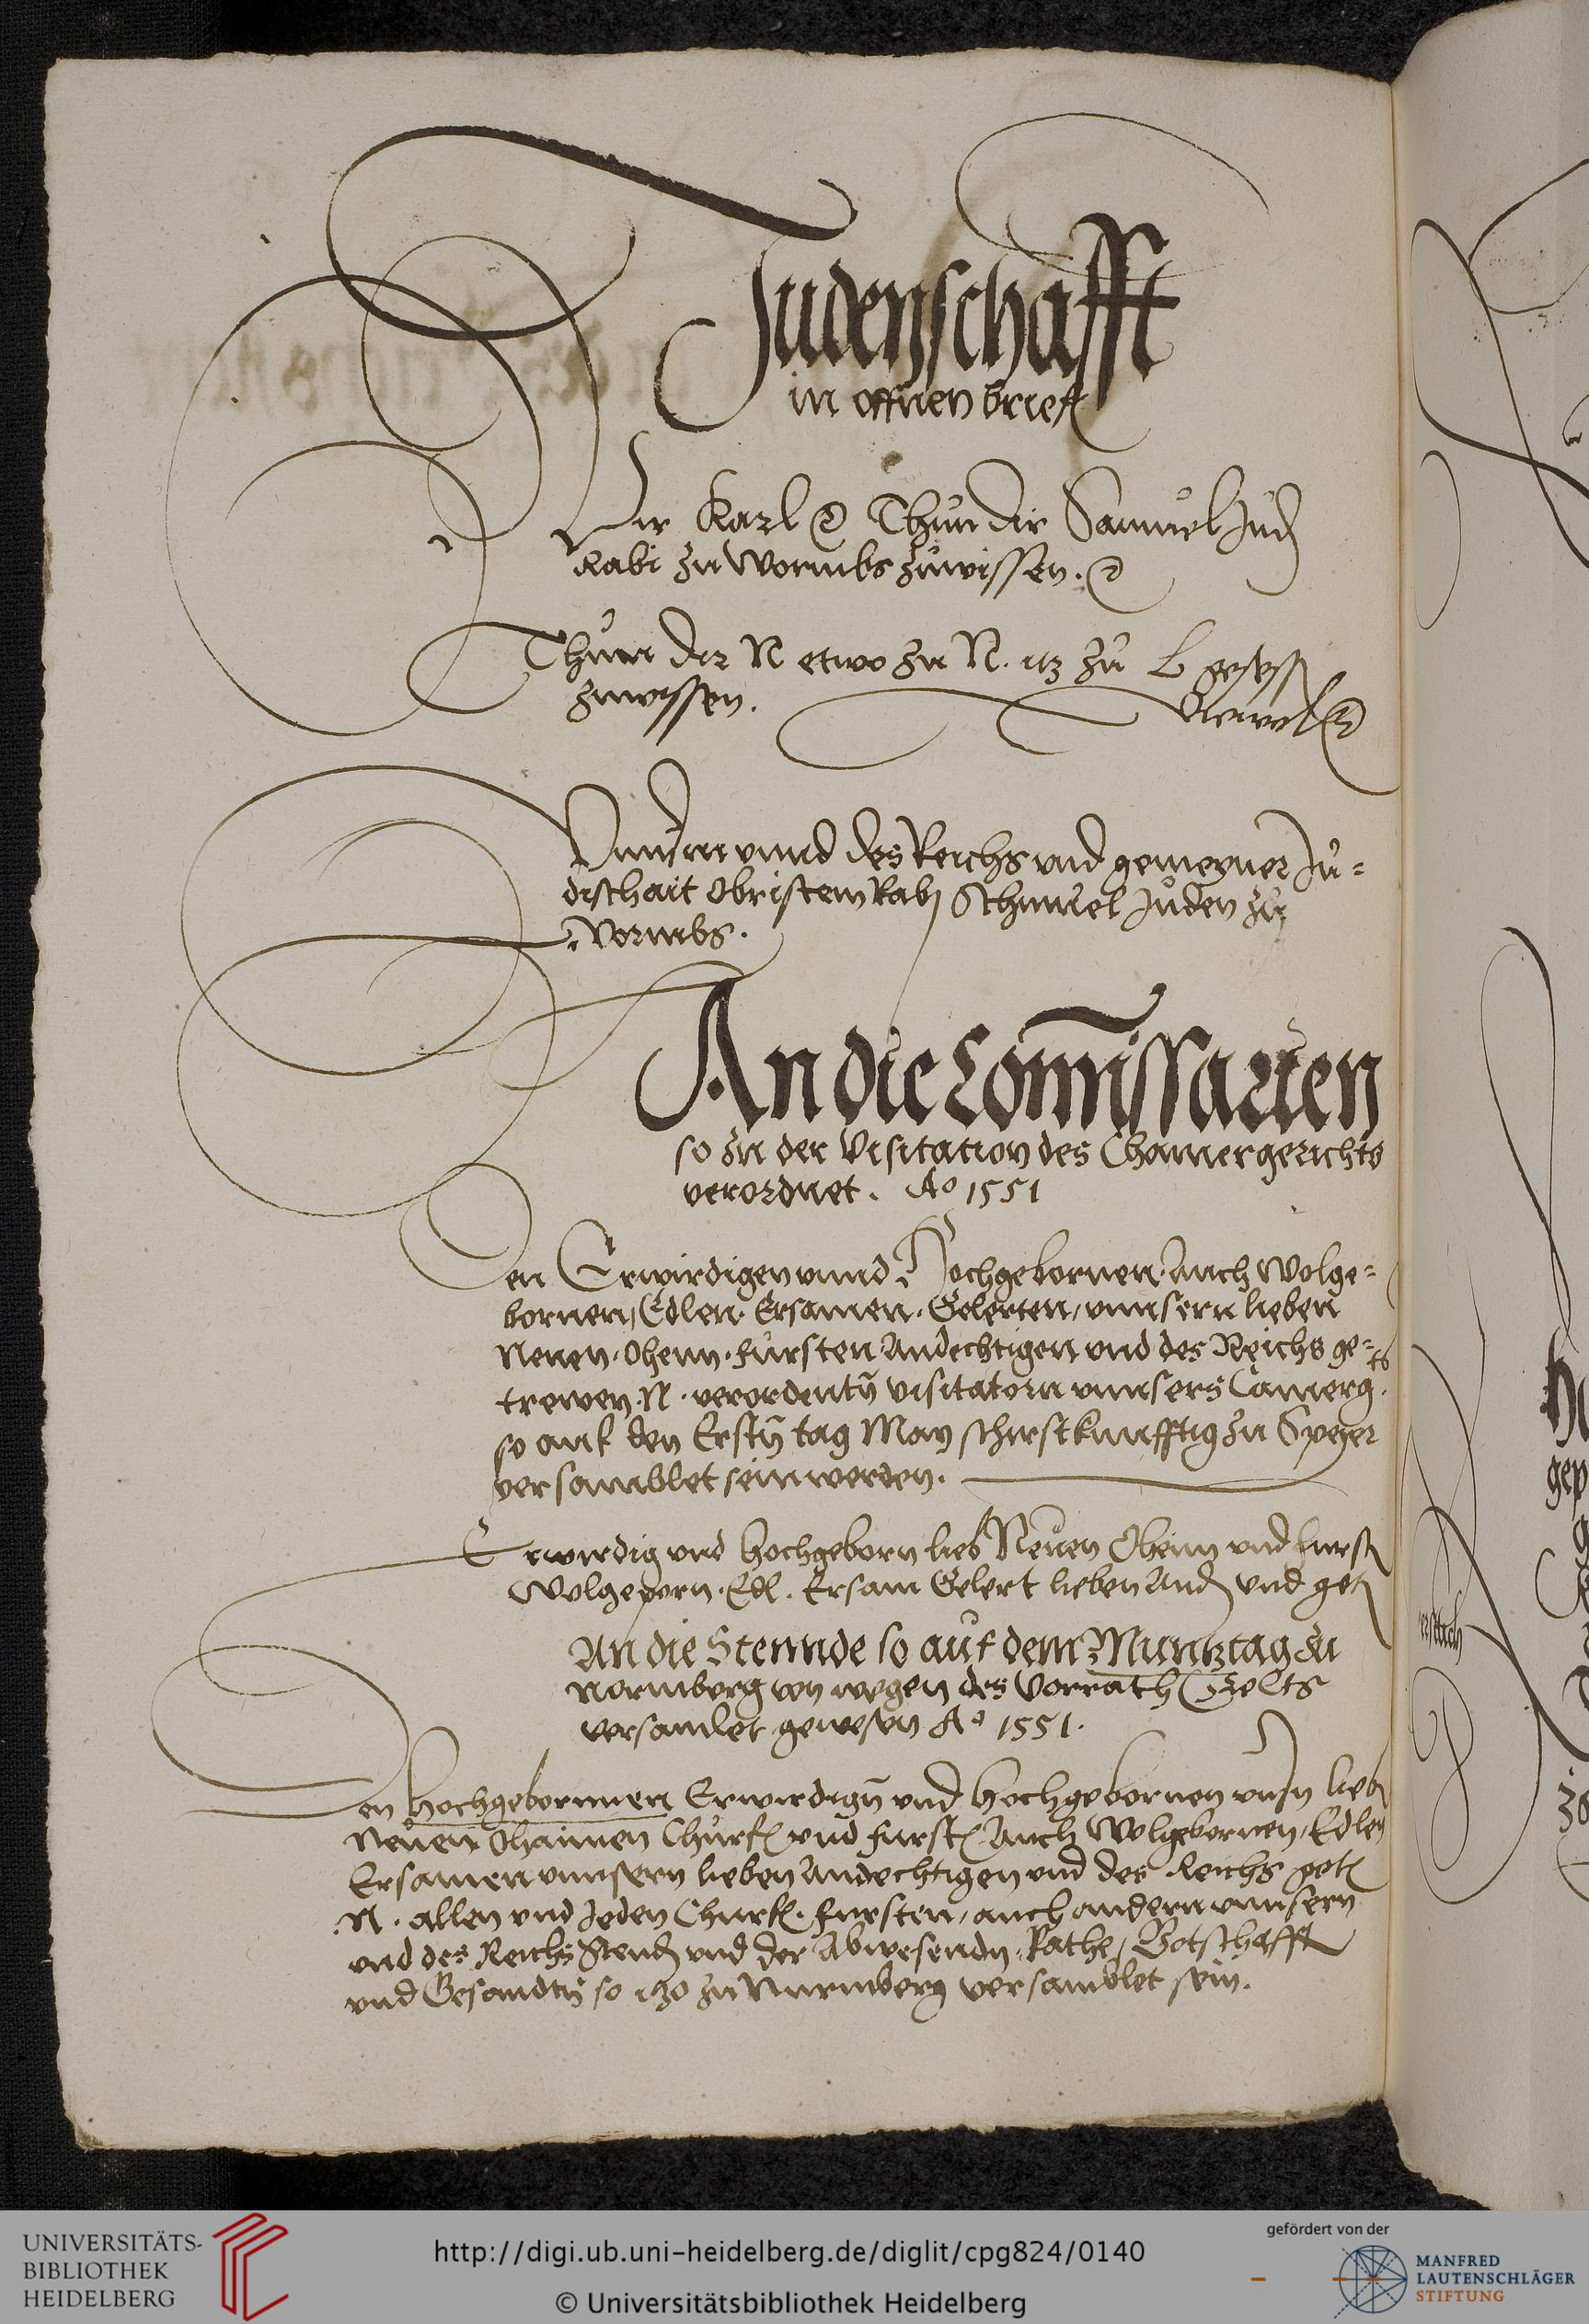 Judenschafft
in offnen brief
Wir Karl Thun dir Samuel Jud
Rabi zu Wormbs zuwissen.
Thun dir N etwo zu N. itz zu L gesess
zuwissen.
Wiewol
Unnserm unnd des Reichs und gemeyner Ju-
dischait Obristem Rabj Schmuel Juden zu
Wormbs.
An die Comissarien
so zu der Visitation des Chamergerichts
verordnet. Ao 1551
Den Erwirdigen unnd Hochgebornen, Auch Wolge-
bornen, Edlen, Ersamen, Gelerten, unnsern lieben
Neuen, Ohenn, Fursten Andechtigen und des Reichs ge-
trewen. N. verordentn visitatorn unnsers Camerg.ts
so auf den Erstn tag May schirstkunfftig zu Speyer
versamblet sein werden.
Erwirdig und Hochgeborn lieb Neuen Oheim und furst
Wolgeporn, Edl. Ersam Gelert lieben And und get
An die Stennde so auf dem Muntztag zu
Nurmberg von wegen des Vorrath Gelts
versamlet gewesen Ao 1551.
Den Hochgebornnen Erwirdign und Hochgebornen unsn lieb
Neuen Ohaimen Churf und furst Auch Wolgebornen, Edlen
Ersamen unnsern lieben Andechtigen und des Reichs get
N. allen und Jeden Churf. fursten, auch andern unnsern
und des Reichs Stend und der Abwesendn, Rathe, Botschafft
und Gesandtn so itzo zu Nurmberg versamblet sein.
UNIVERSITÄTS-
BIBLIOTHEK
HEIDELBERG
http://digi.ub.uni-heidelberg.de/diglit/cpg824/0140
© Universitätsbibliothek Heidelberg
gefördert von der
MANFRED
LAUTENSCHLÄGER
STIFTUNG